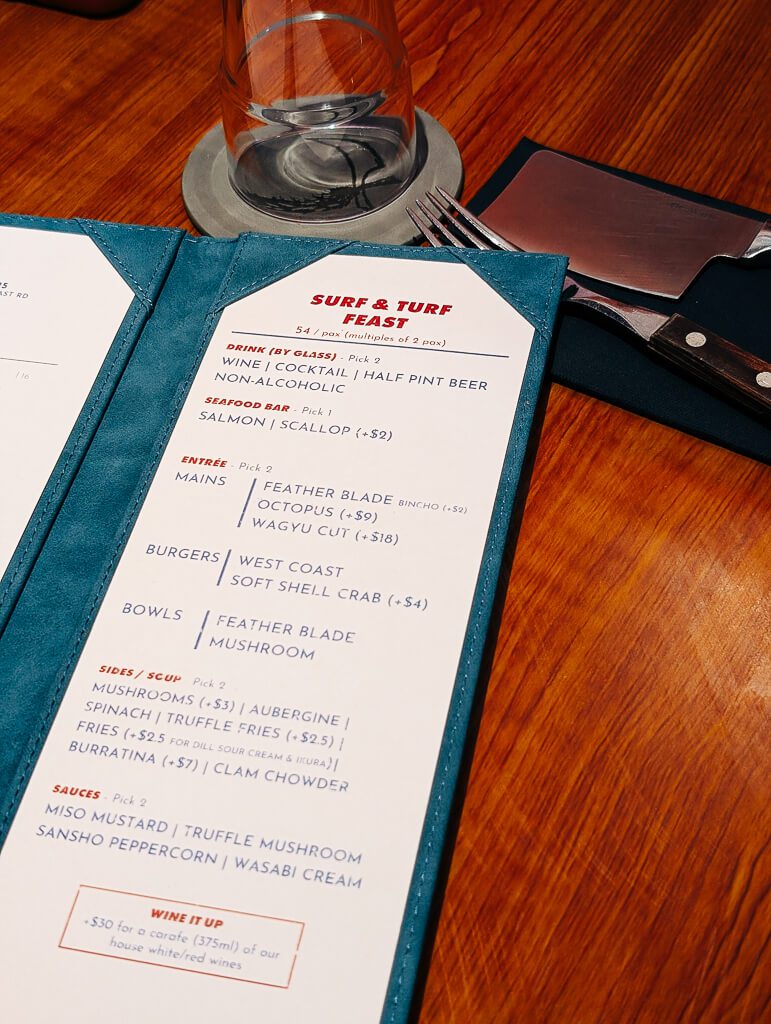 AST RD
/ 16
SURF & TURF
FEAST
54 / pax (multiples of 2 pax)
DRINK (BY GLASS) - Pick 2
WINE | COCKTAIL | HALF PINT BEER
NON-ALCOHOLIC
SEAFOOD BAR - Pick 1
SALMON | SCALLOP (+$2)
ENTRÉE - Pick 2
MAINS
FEATHER BLADE BINCHO (+$2)
OCTOPUS (+$9)
WAGYU CUT (+$18)
BURGERS
WEST COAST
SOFT SHELL CRAB (+$4)
BOWLS
FEATHER BLADE
MUSHROOM
SIDES / SOUP Pick 2
MUSHROOMS (+$3) | AUBERGINE |
SPINACH | TRUFFLE FRIES (+$2.5) |
FRIES (+$2.5 FOR DILL SOUR CREAM & IKURA) |
BURRATINA (+$7) | CLAM CHOWDER
SAUCES - Pick 2
MISO MUSTARD | TRUFFLE MUSHROOM
SANSHO PEPPERCORN | WASABI CREAM
WINE IT UP
+$30 for a carafe (375ml) of our
house white/red wines